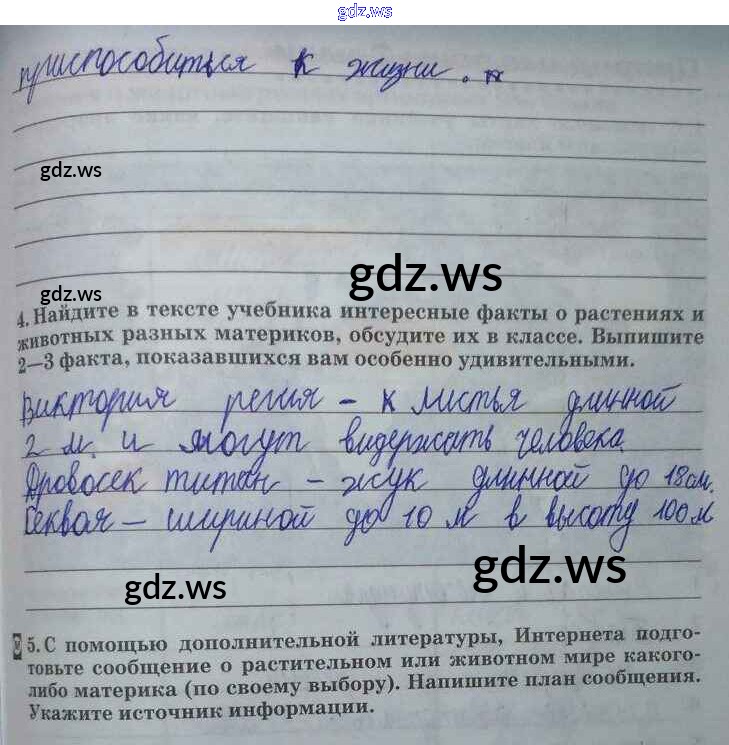 gdz.ws
приспособиться к жизни.
gdz.ws
gdz.ws
gdz.ws
4. Найдите в тексте учебника интересные факты о растениях и
животных разных материков, обсудите их в классе. Выпишите
2—3 факта, показавшихся вам особенно удивительными.
Виктория регия - листья длинной
2 м. и могут видержать человека
Дровосек титан - жук длинной до 18 см.
Секвоя - шириной до 10 м в высоту 100 м
gdz.ws
gdz.ws
5. С помощью дополнительной литературы, Интернета подго-
товьте сообщение о растительном или животном мире какого-
либо материка (по своему выбору). Напишите план сообщения.
Укажите источник информации.